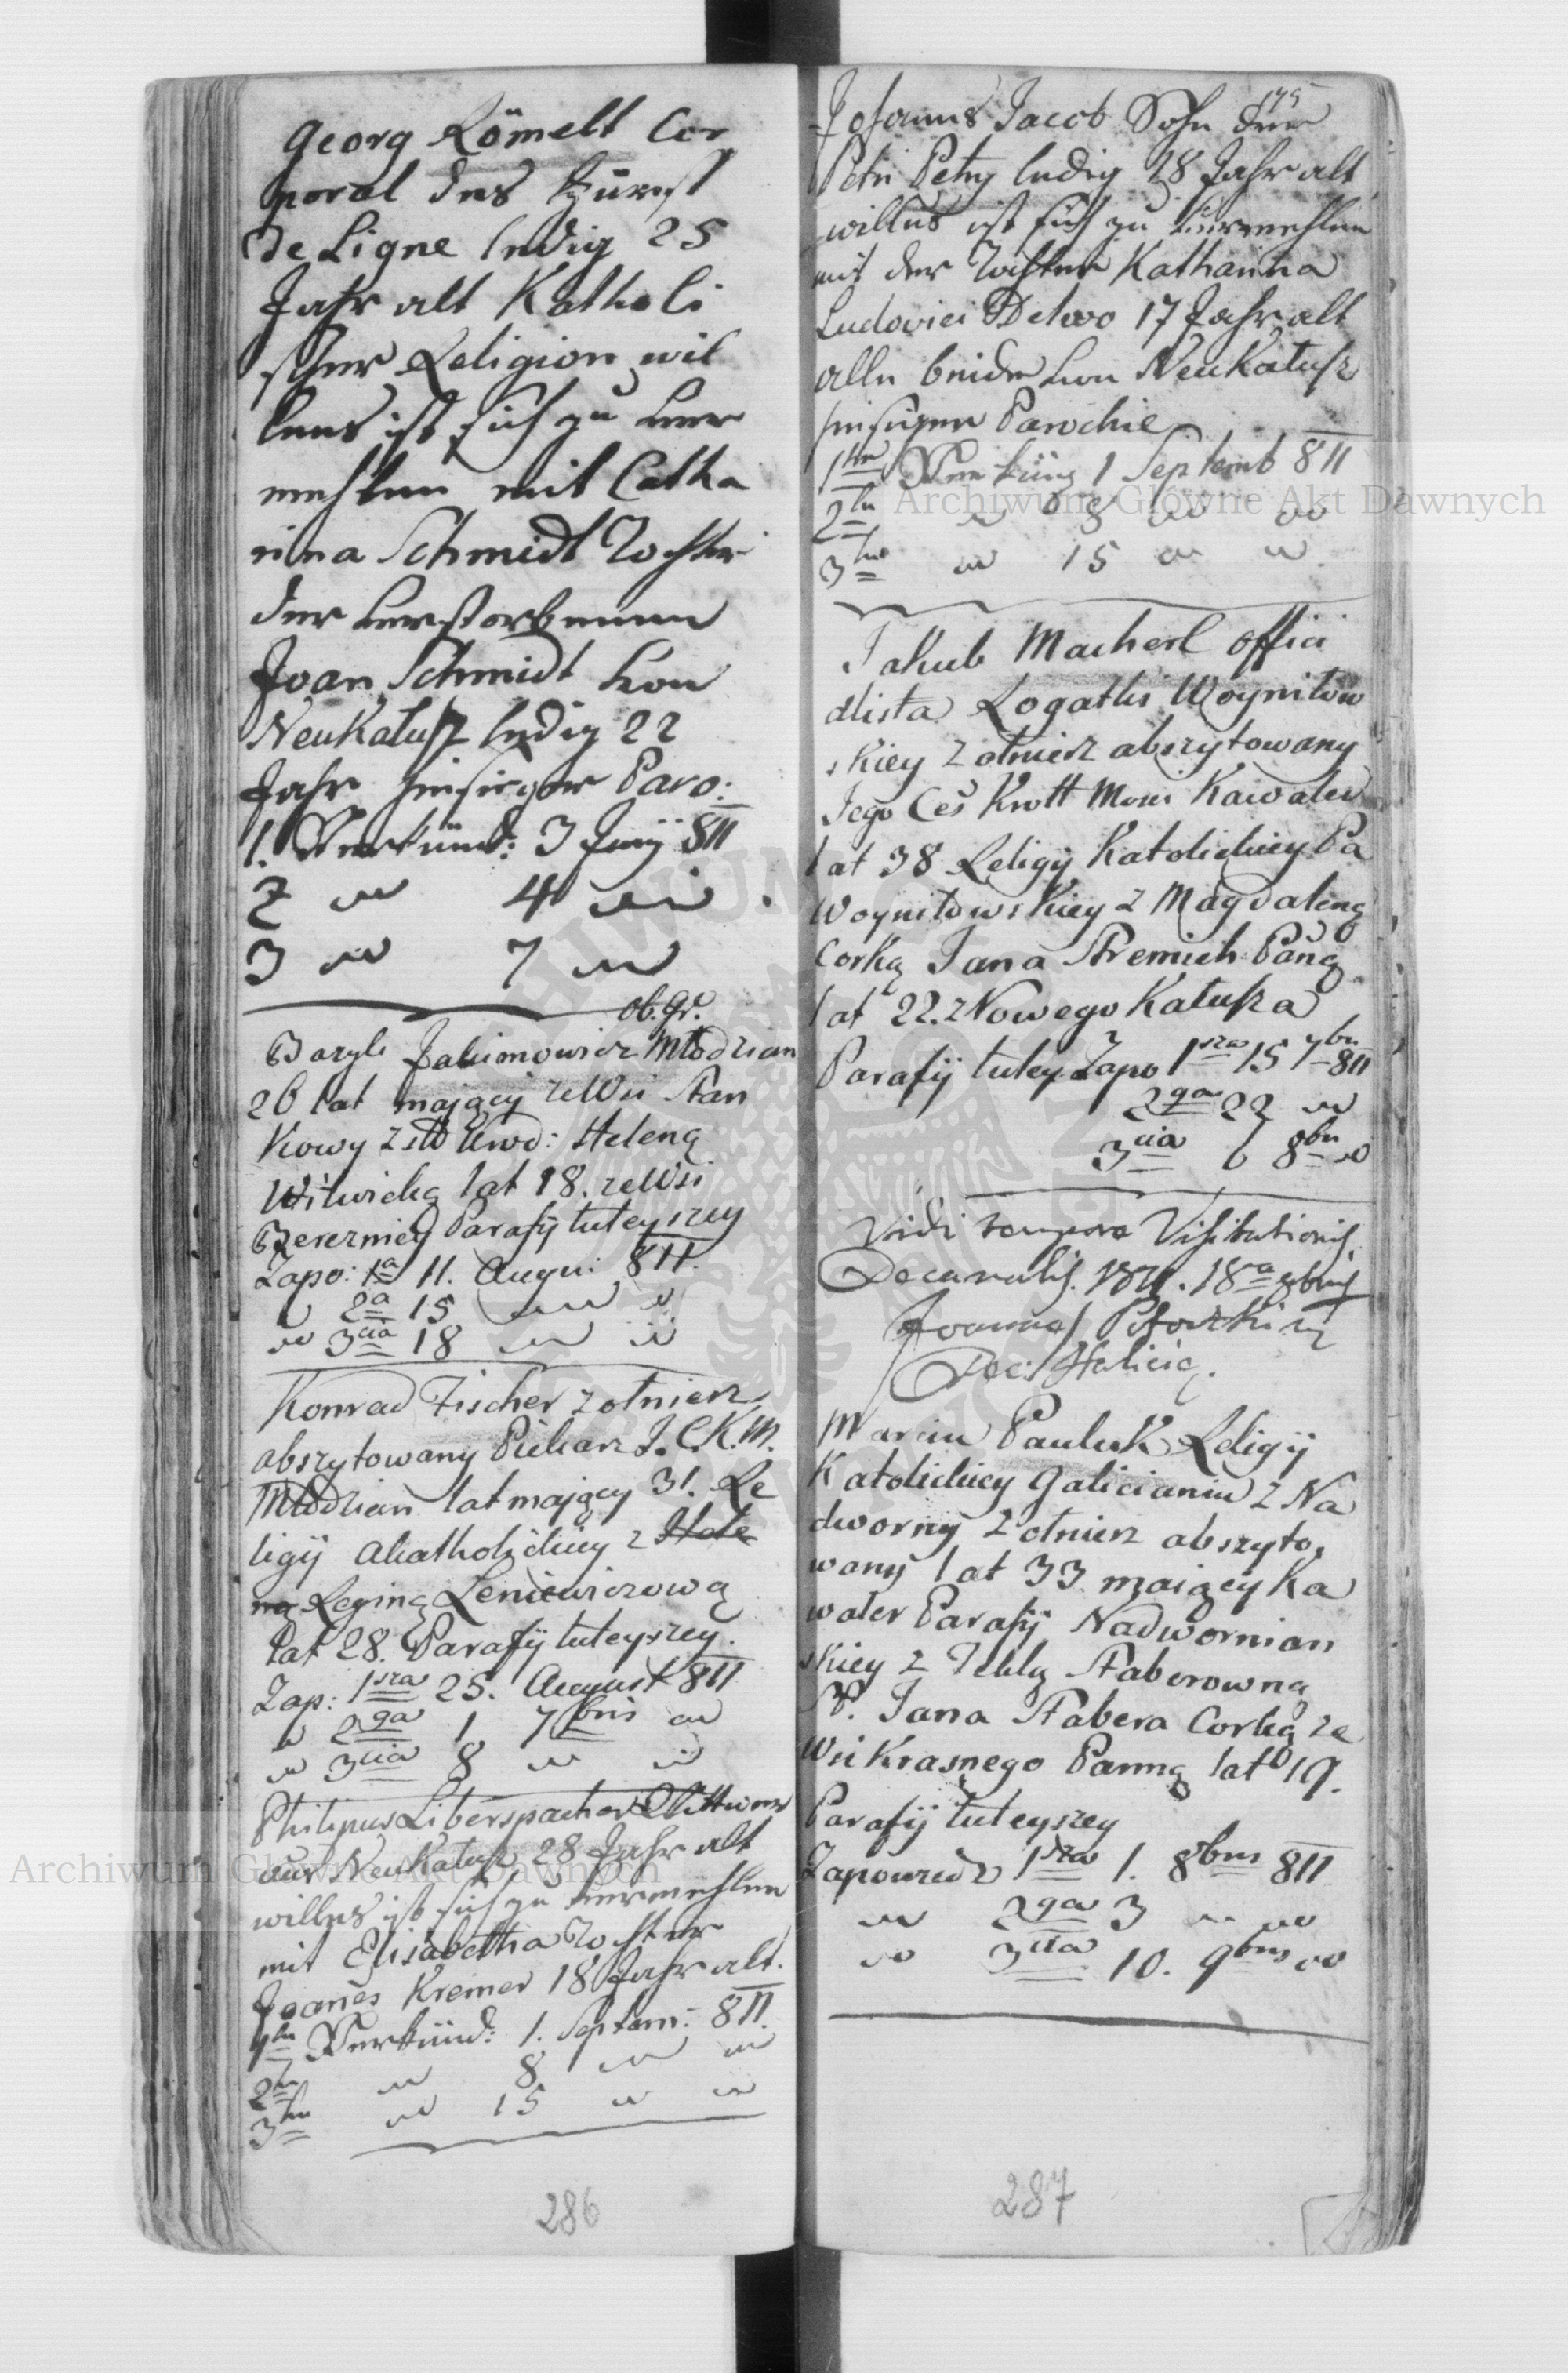 Georg Römelt Cor
poral des Fürst
de Ligne ledig 25
Jahr alt Katholi
scher Religion wil
lens ist sich zu ver
mehlen mit Catha
rina Schmidt Tochter
der verstorbenen
Joan Schmidt von
NeuKałusz ledig 22
Jahr hiesiger Paro:
1. Verkünd: 3 Juny 811
2 " 4 "
3 " 7 "
ob. gr.
Bazyli Jakimowicz Młodzian
26 lat mający ze Wsi Stan
kowy z Heleną
Witwicką lat 18. ze Wsi
Bereznicy Parafij tuteyszey
Zapo: 1a 11. Augu: 811.
" 2a 15 " "
" 3cia 18 " "
Konrad Fischer Zołnierz
abszytowany Piekarz J.C.K.M.
Młodzian lat mający 31. Re
ligij Akatholickiey z Hele
ną Reginą Leniewiczową
lat 28. Parafij tuteyszey.
Zap: 1sza 25. August 811
" 2ga 1 7bris "
" 3cia 8 " "
Philipus Liberspacher Wittwer
aus NeuKałusz 28 Jahr alt
willens ist sich zu vermehlen
mit Elisabetha Tochter
Joanes Kremer 18 Jahr alt.
1te Verkünd: 1. Septem: 811.
2te " 8 " "
3te " 15 " "
286
175
Johannes Jacob Sohn des
Petri Petry ledig 28 Jahr alt
willens ist sich zu vermehlen
mit der Tochter Katharina
Ludovici Delwo 17 Jahr alt
alle beide von NeuKałusz
hiesigen Parochie
1te Verkünd 1 Septemb 811
2te " 8 " "
3te " 15 " "
Jakub Macherl offici
alista Rogatki Woyniłow
skiey Zołnierz abszytowany
Jego Ces Krott Mosci Kawaler
lat 38 Religij Katolickiey Pa
Woyniłowskiey z Magdaleną
Corką Jana Panną
lat 22. z Nowego Kałusza
Parafij tutey. Zapo 1sza 15 7bris 811
2ga 22 "
3cia 6 8bris "
Vidi tempore Visitationis
Decanalis. 1811. 18a 8bris
Joannes
Dec: Halicie.
Marcin Pauluk Religij
Katolickiey Galicianin z Na
dworny Zołnierz abszyto,
wany lat 33 maiący Ka
waler Parafij Nadwornian
skiey z Teklą Staberowną
P. Jana Stabera Corką ze
Wsi Krasnego Panną lat 19.
Parafij tuteyszey
Zapowiedz 1sza 1. 8bris 811
" 2ga 3 " "
" 3cia 10. 9bris "
287
Archiwum Główne Akt Dawnych
Archiwum Główne Akt Dawnych